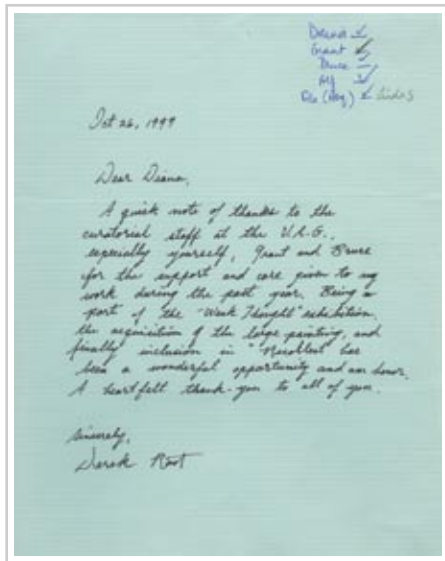 Daina
Grant
Bruce
Oct 26, 1999
Dear Diana,
A quick note of thanks to the
curatorial staff at the V.A.G.,
especially yourself, Grant and Bruce
for the support and care given to my
work during the past year. Being a
part of the "Weak Thought" exhibition,
the acquisition of the large painting, and
finally inclusion in "Recollect" has
been a wonderful opportunity and an honor.
A heartfelt thank-you to all of you.
Sincerely,
Derek Root